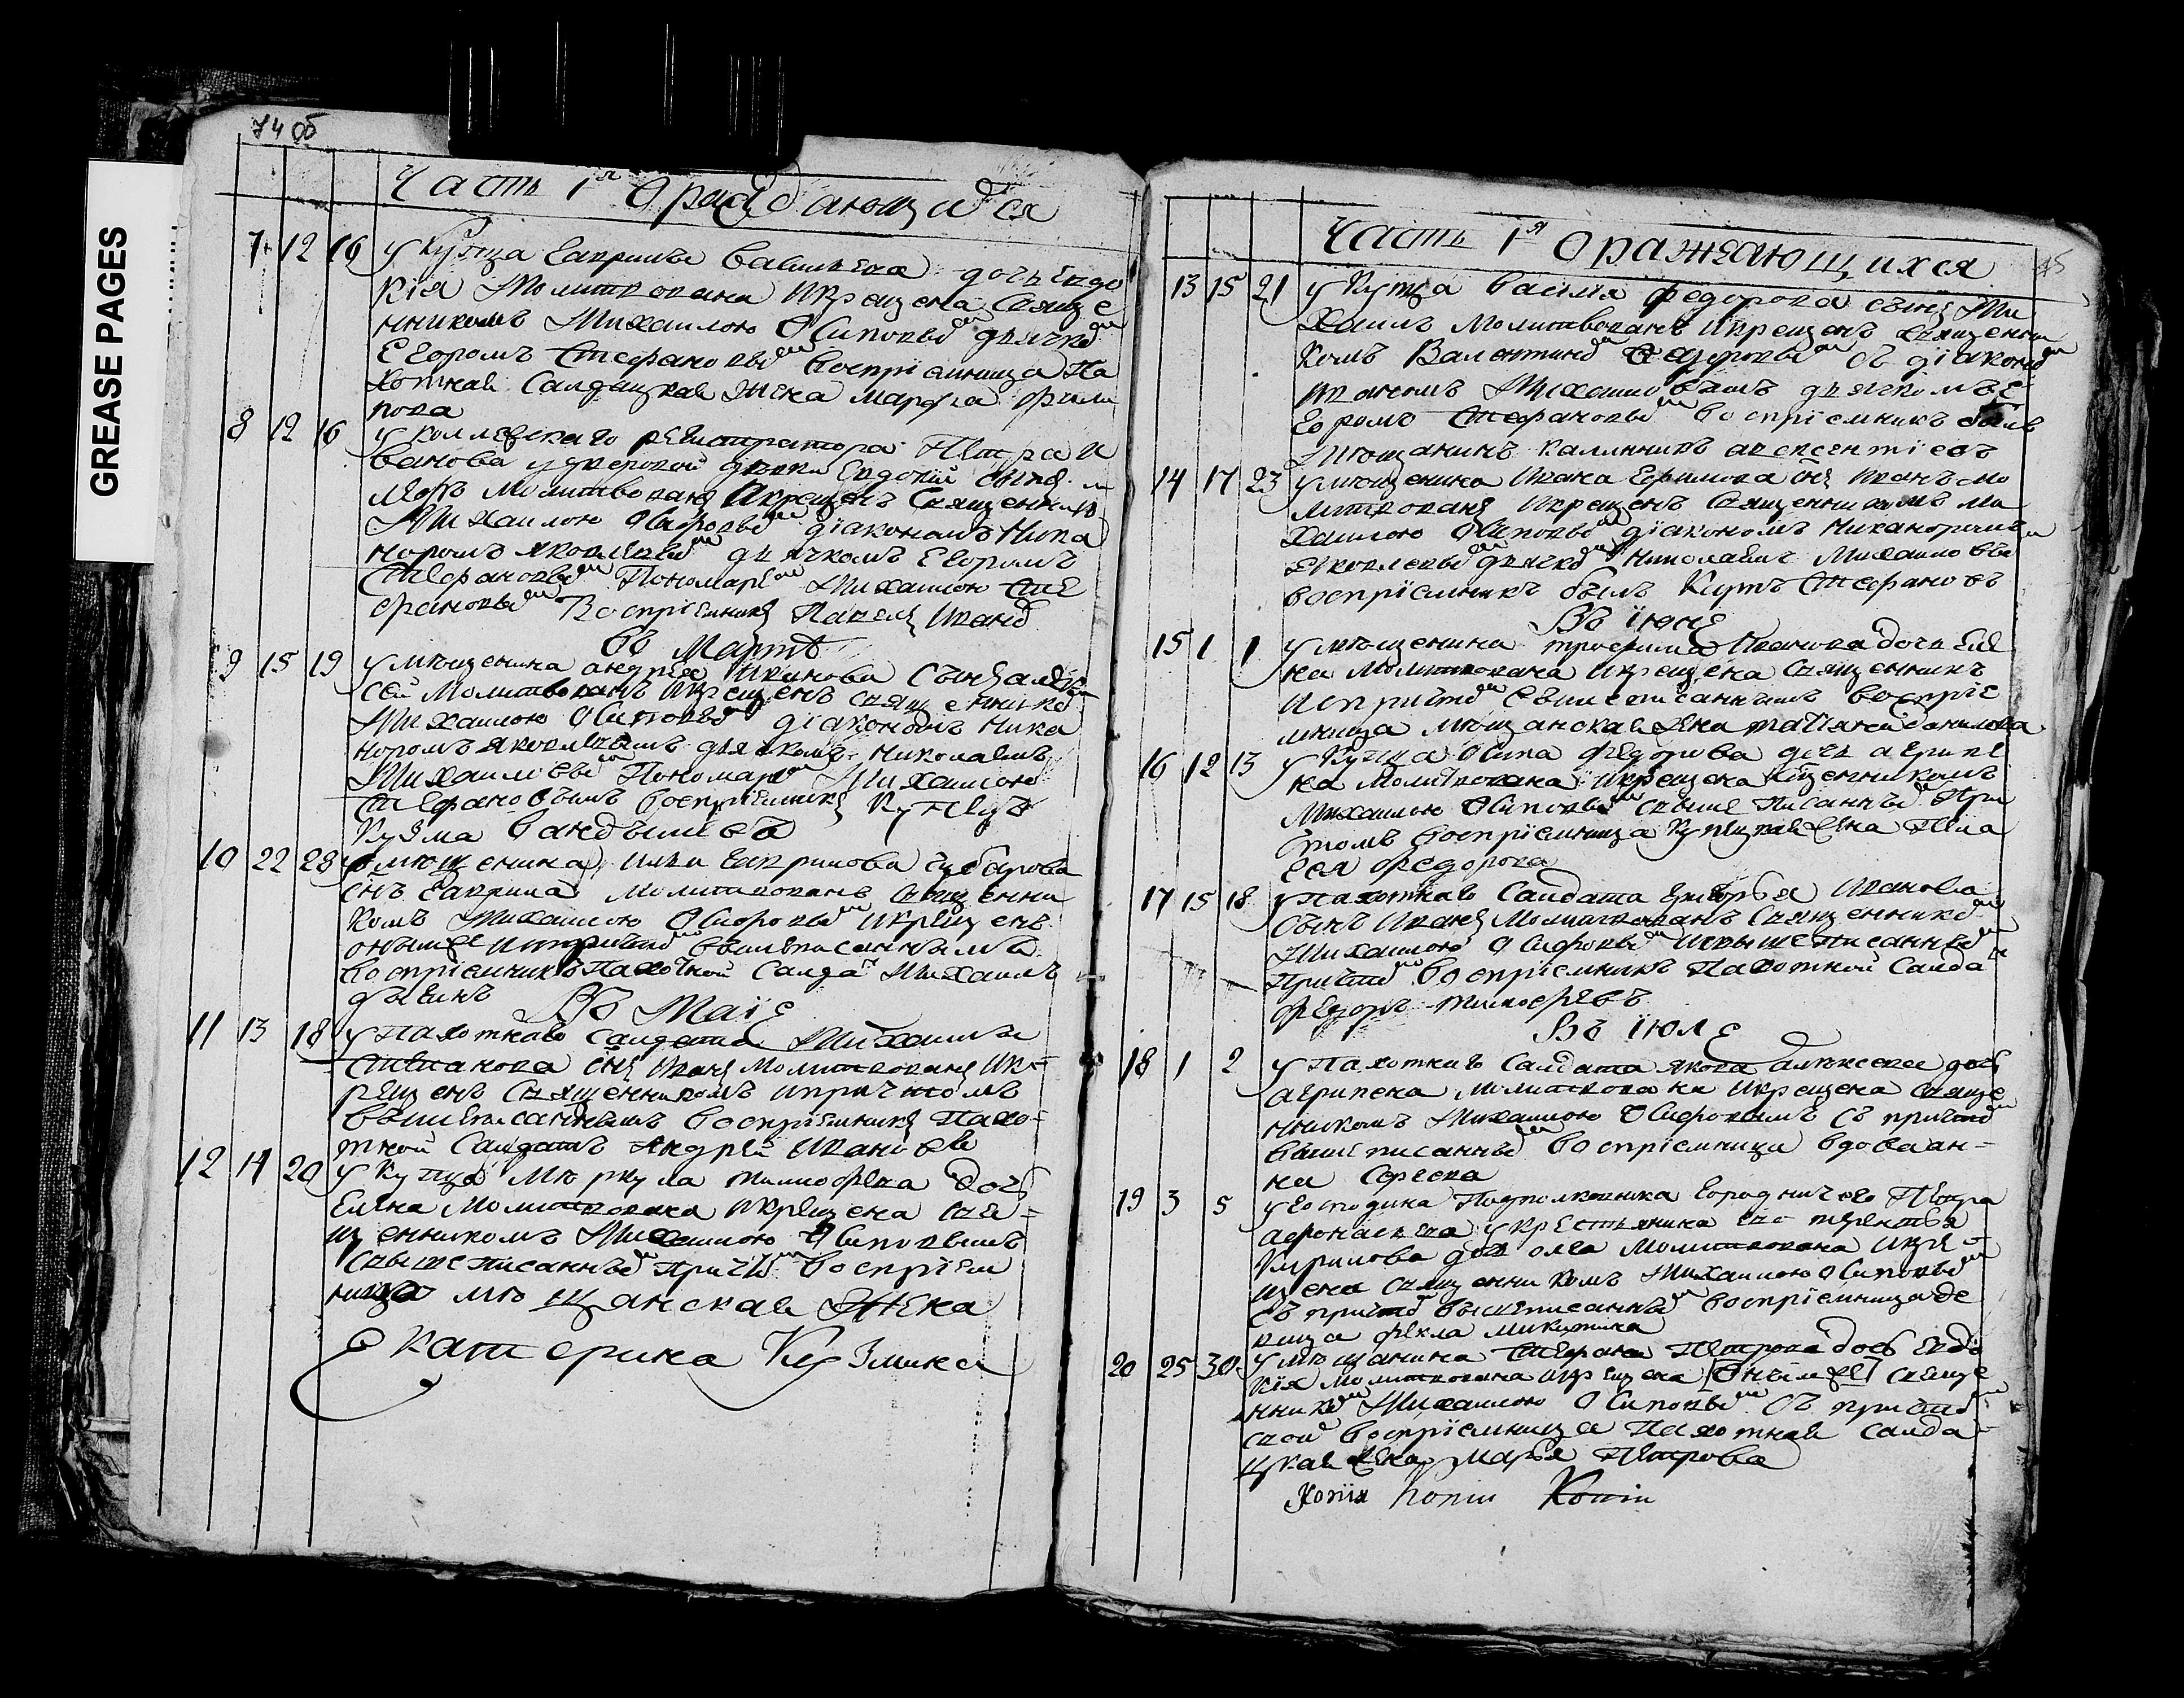 GREASE PAGES
74 об
Часть 1я О раждающихся
7 12 16 у купца Гаврилы Васильева дочь Евдо
кія Молитвована Икрещена Свяще
нникомъ Михаилою Осиповымъ дьячкомъ
Егоромъ Стефановымъ Воспріемница Па
хотная Салдацкая Жена Марфа Фили
пова
8 12 16 у коллежскаго регистратора Петра И
ванова у дворовой девки Евдокіи сынъ
Молитвованъ Икрещенъ Священником
Михаилою Осифовымъ діакономъ Ника
норомъ Яковлевымъ дьячкомъ Егоромъ
Стефановымъ Пономаремъ Михаилою Сте
фановымъ Воспріемникъ Павелъ Ивановъ
Въ Мартѣ
9 15 19 у мѣщенина андрея Иванова Сынъ алек
сей Молитвованъ Икрещенъ священникомъ
Михаилою Осиповымъ діакономъ Ника
норомъ Яковлевымъ дьячкомъ Николаемъ
Михаиловымъ Пономаремъ Михаилою
Стефановымъ воспріемникъ Купецъ
Кузма
10 22 28 у мѣщенина Гаврилова
снъ Гаврила Молитвованъ священни
комъ Михаилою Осифовымъ Икрещенъ
онымже Ипричтомъ вышеписаннымъ
воспріемникъ Пахотной Салдатъ Михаилъ
Въ Маіе
11 13 18 у Пахотнаго Салдата Михаилы
Степанова снъ Иванъ Молитвованъ Ик=
рещенъ Священникомъ Ипричтомъ
вышеписаннымъ воспріемникъ Пахо=
тной Салдатъ Андрей Ивановъ
12 14 20 у Купца Меркула Тимофеева дочь
Елена Молитвована Икрещена Свя=
щенникомъ Михаилою Осиповымъ
Свышеписаннымъ Причтомъ воспріем
ница мѣщанская Жена
Екатерина Кузмина
45
Часть 1я О раждающихся
13 15 21 у Купца Василя Федорова сынъ Ми
хаилъ Молитвованъ Икрещенъ Священни
комъ Валентиномъ Федоровымъ съ діакономъ
Михаиловымъ дьячкомъ Е
горомъ Стефановымъ воспріемникъ былъ
Мѣщанинъ Калинникъ авксентіевъ
14 17 23 у мѣщенина Ивана Ефимова снъ Иванъ мо
литвованъ Икрещенъ Священникомъ Ми
хаилою Осиповымъ діакономъ Никаноромъ
Яковлевымъ дьячкомъ Николаемъ Михаиловым
воспріемникъ былъ Купецъ Стефановъ
Въ Іюнѣ
15 1 1 у мѣщенина трофима Иванова дочь Еле
на Молитвована Икрещена Священникомъ
Ипричтомъ свышеписаннымъ воспріе
мница мѣщанская жена татіана данилова
16 12 13 у Купца Осипа Федорова дочь агрипе
на Молитвована Икрещена священникомъ
Михаилою Осиповымъ свыше писаннымъ При
чтомъ воспріемница Купецкая жена Пела
гея Федорова
17 15 18 у Пахотнаго Салдата Григорья Иванова
сынъ Иванъ Молитвованъ Священникомъ
Михаилою Осифовымъ Исвышеписаннымъ
Причтомъ воспріемникъ Пахотной Салдатъ
Федоръ Тимофеевъ
Въ Іюлѣ
18 1 2 у Пахотнаго Салдата Якова алексеева дочь
агрипена молитвована Икрещена Свяще
нникомъ Михаилою Осифовымъ Съ причтомъ
вышеписаннымъ воспріемница вдова ан=
на Сергеева
19 3 5 у Господина Подполковника Городничего Петра
афонасьева у крестьянина его терентья
Кирилова дочь олга Молитвована Икре=
щена Священникомъ Михаилою Осиповымъ
Съ причтомъ вышеписаннымъ воспріемница де
вица Фекла Микитина
20 25 30 у мѣщанина Стефана Петрова дочь Евдо
кія Молитвована Икрещена Онымже Свяще
нникомъ Михаилою Осиповымъ Съ причтомъ
своимъ воспріемница Пахотная Салда=
цкая жена Марья Петрова
Копія Копіи Копіи